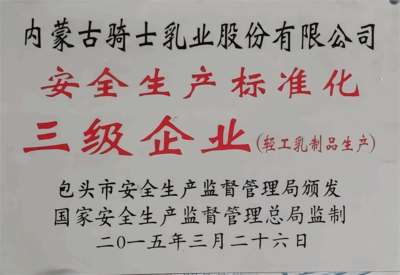 内蒙古骑士乳业股份有限公司
安全生产标准化
三级企业(轻工乳制品生产)
包头市安全生产监督管理局颁发
国家安全生产监督管理总局监制
二〇一五年三月二十六日